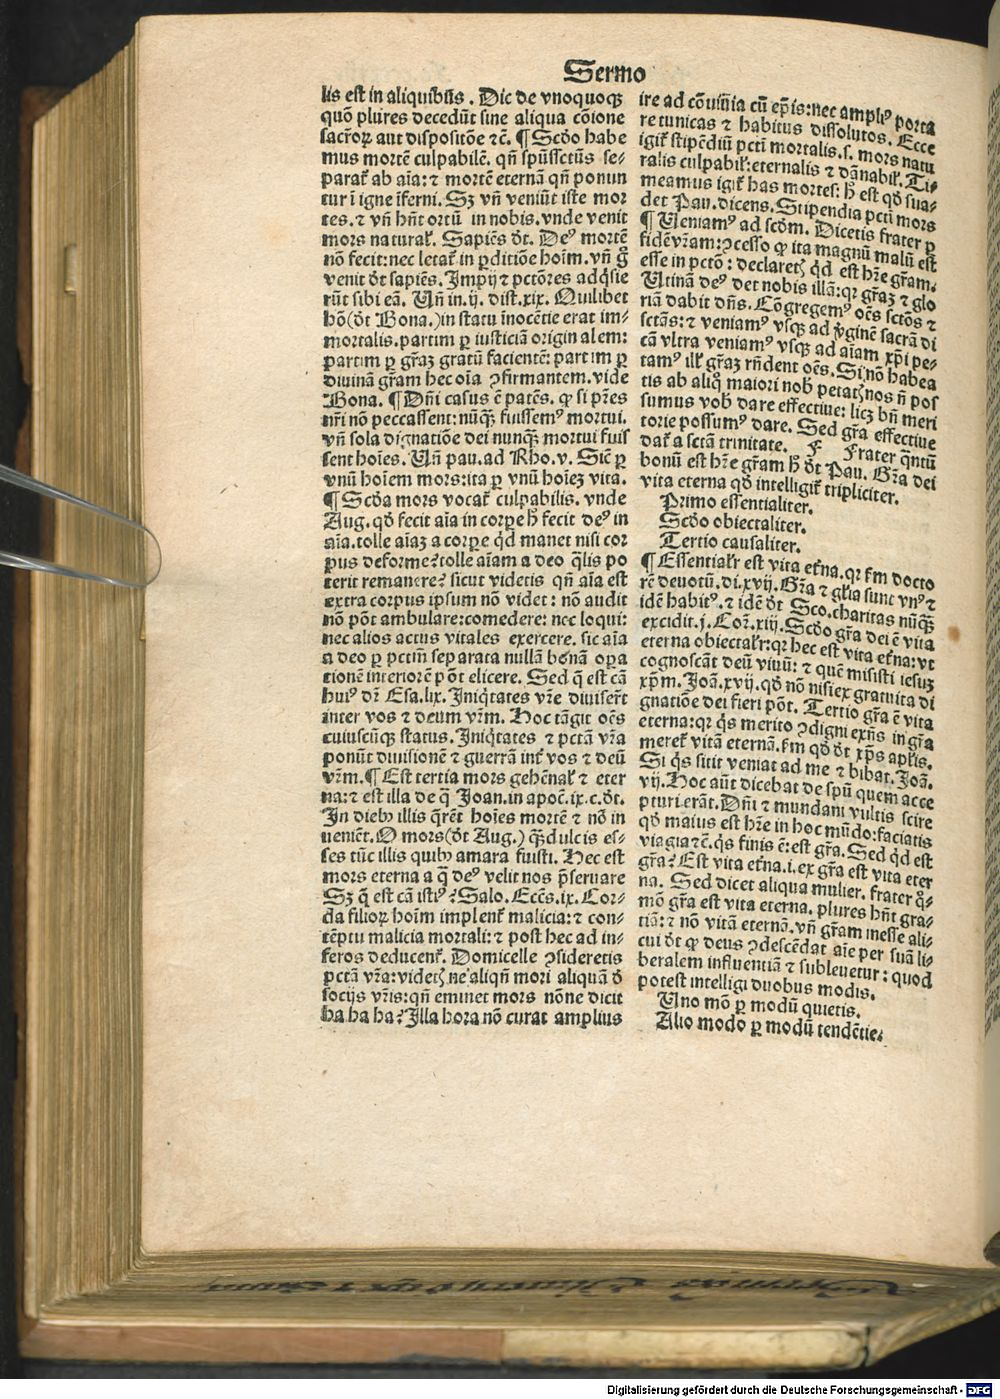 Sermo
lis est in aliquibus. Dic de vnoquoqꝫ
quõ plures decedũt sine aliqua cõione
sacroꝝ aut dispositõe ⁊c̃. ¶ Scdo habe
mus mortẽ culpabilẽ. qñ spũssctũs se-
parat ab aĩa: ⁊ mortẽ eternã qñ ponun
tur ĩ igne ĩferni. Sꝫ vñ veniũt iste mor
tes. ⁊ vñ hñt ortũ in nobis. vnde venit
mors natural. Sapiẽs ðt. Deꝰ mortẽ
nõ fecit: nec letat in ꝑditiõe hoĩm. vñ g̃
venit ðt sapiẽs. Impij ⁊ pctõres adqsie
rũt sibi eã. Uñ in .ij. dist. xix. Quilibet
hõ (ðt Bona.) in statu ĩnocẽtie erat im-
mortalis. partim ꝑ iusticiã originalem:
partim ꝑ gr̃az gratũ facientẽ: partim ꝑ
diuinã gr̃am hec oĩa ꝯfirmantem. vide
Bona. ¶ Dñi casus ẽ patẽs. ꝙ si pr̃es
nr̃i nõ peccassent: nũqꝫ fuissemꝰ mortui.
vñ sola dignatiõe dei nunqꝫ mortui fuis
sent hoĩes. Uñ pau. ad Rho. v. Sic̃ ꝑ
vnũ hoĩem mors: ita ꝑ vnũ hoĩeꝫ vita.
¶ Scda mors vocat culpabilis. vnde
Aug. qð fecit aĩa in corpe ħ fecit deꝰ in
aĩa. tolle aĩaꝫ a corpe qd manet nisi cor
pus deforme? tolle aĩam a deo qlis po
terit remanere? sicut videtis qñ aĩa est
extra corpus ipsum nõ videt: nõ audit
nõ põt ambulare: comedere: nec loqui:
nec alios actus vitales exercere. sic aĩa
a deo ꝑ pctm̃ separata nullã bonã oꝑa
tionẽ interiorẽ põt elicere. Sed q̃ est cã
huiꝰ dr̃ Esa. lix. Iniqtates vr̃e diuisert
inter vos ⁊ deum vr̃m. Hoc tãgit oẽs
cuiuscũqꝫ status. Iniqtates ⁊ pctã vr̃a
ponũt diuisionẽ ⁊ guerrã int vos ⁊ deũ
vr̃m. ¶ Est tertia mors gehẽnal ⁊ eter
na: ⁊ est illa de q̃ Joan. in apoc. ix. c. ðt.
In dieb illis q̃rẽt hoĩes mortẽ ⁊ nõ in
ueniẽt. O mors (ðt Aug.) qꝫ dulcis es-
ses tũc illis quib amara fuisti. Hec est
mors eterna a q̃ deꝰ velit nos p̃seruare
Sꝫ q̃ est cã istiꝰ? Salo. Eccs̃. ix. Cor-
da filioꝝ hoĩm implent malicia: ⁊ con-
tẽptu malicia mortali: ⁊ post hec ad in-
feros deducent. Domicelle ꝯsideretis
pctã vr̃a: videtꝭ ne aliqñ mori aliquã ð
socijs vr̃is: qñ eminet mors nõne dicit
ha ha ha? Illa hora nõ curat amplius
ire ad cõuiuia cũ ep̃is: nec ampliꝰ porta
re tunicas ⁊ habitus dissolutos. Ecce
igit stipẽdiũ pcti mortalis. s. mors natu
ralis culpabil: eternalis ⁊ dãnabil. Ti-
meamus igit has mortes: ħ est qð sua-
det Pau. dicens. Stipendia pcti mors
¶ Ueniamꝰ ad scdm. Dicetis frater ꝑ
fidẽ vr̃am: ꝯcesso ꝙ ita magnũ malũ est
esse in pctõ: declaretꝭ qd est hr̃e gr̃am.
Utinã deꝰ det nobis illã: qꝛ gr̃aꝫ ⁊ glo
riã dabit dñs. Cõgregemꝰ oẽs sctõs ⁊
sctãs: ⁊ veniamꝰ vsqꝫ ad v̓ginẽ sacrã di
cã vltra veniamꝰ vsqꝫ ad aĩam xp̃i pe-
tamꝰ ill gr̃aꝫ rñdent oẽs. Si nõ habea
tis ab aliq̃ maiori nob petatꝭ nos ñ pos
sumus vob dare effectiue: licꝫ bñ meri
torie possumꝰ dare. Sed gr̃a effectiue
dat a sctã trinitate. F Frater q̃ntũ
bonũ est hr̃e gr̃am ħ ðt Pau. Gr̃a dei
vita eterna qð intelligit tripliciter.
Primo essentialiter.
Scdo obiectaliter.
Tertio causaliter.
¶ Essential̃r est vita et̃na. qꝛ fm docto
rẽ deuotũ. di. xvij. Gr̃a ⁊ glia sunt vnꝰ ⁊
idẽ habitꝰ. ⁊ idẽ ðt Sco. charitas nũqꝫ
excidit. j. Cor̃. xiij. Scdo gr̃a dei ẽ vita
eterna obiectal̃r: qꝛ hec est vita et̃na: vt
cognoscãt deũ viuũ: ⁊ quẽ misisti iesuꝫ
xp̃m. Joã. xvij. qð nõ nisi ex gratuita di
gnatiõe dei fieri põt. Tertio gr̃a ẽ vita
eterna: qꝛ qs merito ꝯdigni exñs in gr̃a
meret vitã eternã. fm qð ðt xp̃s apl̃is.
Si qs sitit veniat ad me ⁊ bibat. Joã.
vij. Hoc aũt dicebat de spũ quem acce
pturi erãt. Dñi ⁊ mundani vultis scire
qð maius est hr̃e in hoc mũdo: faciatis
viagia ⁊c̃. qs finis ẽ: est gr̃a. Sed qd est
gr̃a? Est vita et̃na. i. ex gr̃a est vita eter
na. Sed dicet aliqua mulier. frater q̊-
mõ gr̃a est vita eterna. plures hñt gra-
tiã: ⁊ nõ vitã eternã. vñ gr̃am inesse ali-
cui ðt ꝙ deus ꝯdescẽdat aĩe per suã li-
beralem influentiã ⁊ subleuetur: quod
potest intelligi duobus modis.
Uno mõ ꝑ modũ quietis.
Alio modo ꝑ modũ tendẽtie.
Digitalisierung gefördert durch die Deutsche Forschungsgemeinschaft - DFG